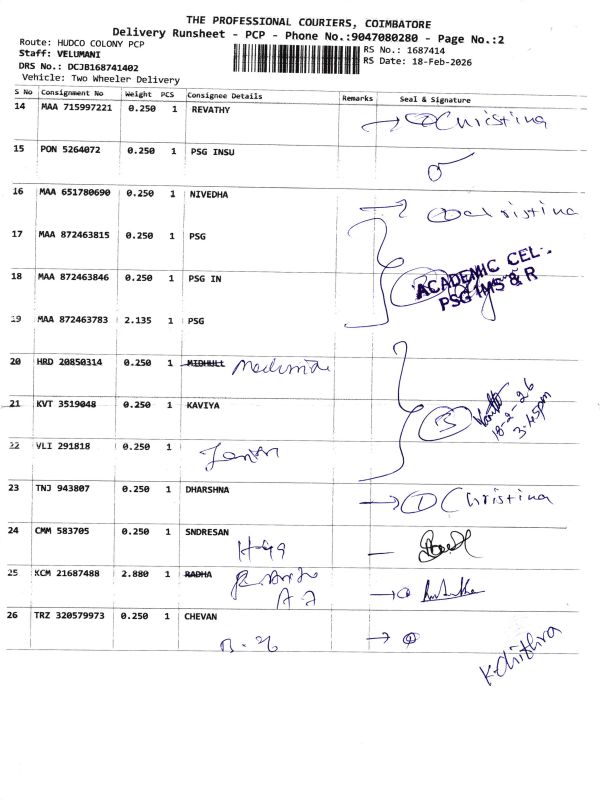 THE PROFESSIONAL COURIERS, COIMBATORE
Delivery Runsheet - PCP - Phone No.:9047080280 - Page No.:2
Route: HUDCO COLONY PCP
RS No.: 1687414
Staff: VELUMANI
RS Date: 18-Feb-2026
DRS No.: DCJB168741402
Vehicle: Two Wheeler Delivery
S No Consignment No Weight PCS Consignee Details Remarks Seal & Signature
14 MAA 715997221 0.250 1 REVATHY
Christina
15 PON 5264072 0.250 1 PSG INSU
16 MAA 651780690 0.250 1 NIVEDHA
Christina
17 MAA 872463815 0.250 1 PSG
18 MAA 872463846 0.250 1 PSG IN
ACADEMIC CEL
PSG IMS & R
19 MAA 872463783 2.135 1 PSG
20 HRD 20850314 0.250 1
21 KVT 3519048 0.250 1 KAVIYA
5
18-2-26
3.45pm
22 VLI 291818 0.250 1
23 TNJ 943807 0.250 1 DHARSHNA
1 Christina
24 CMM 583705 0.250 1 SNDRESAN
25 KCM 21687488 2.880 1 RADHA
26 TRZ 320579973 0.250 1 CHEVAN
K. Chithra